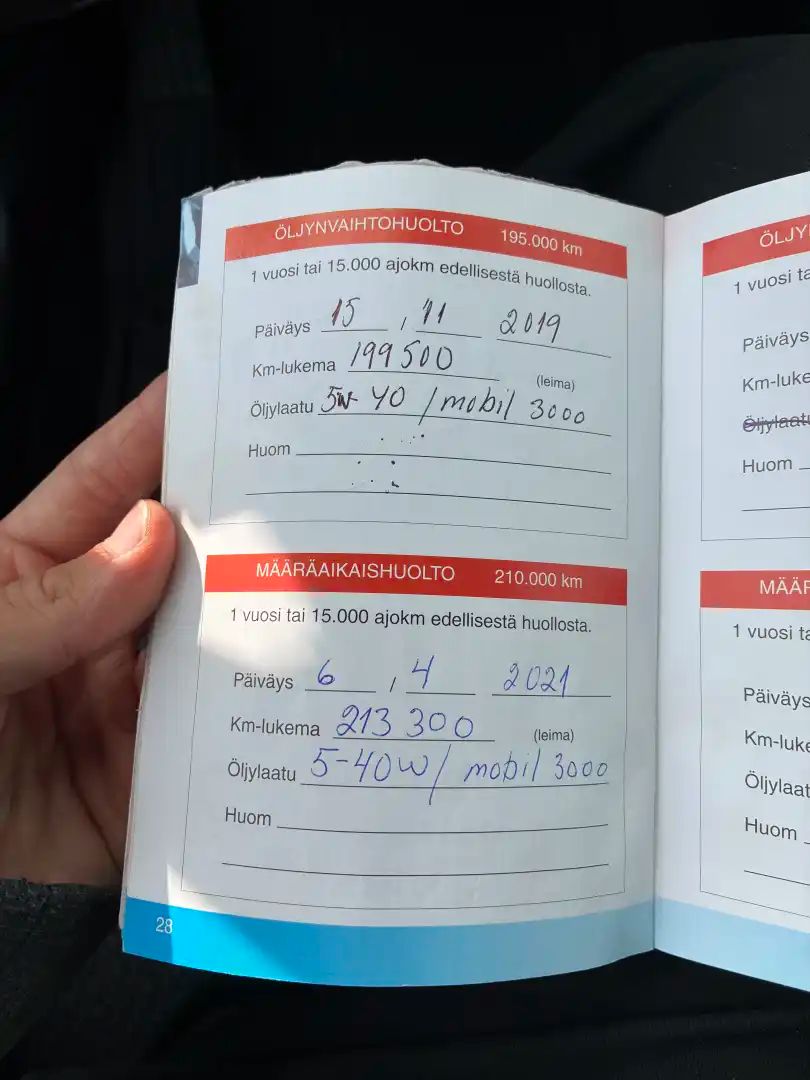 ÖLJYNVAIHTOHUOLTO 195.000 km
1 vuosi tai 15.000 ajokm edellisestä huollosta.
Päiväys 15 / 11 2019
Km-lukema 199 500 (leima)
Öljylaatu 5w-40 / mobil 3000
Huom
MÄÄRÄAIKAISHUOLTO 210.000 km
1 vuosi tai 15.000 ajokm edellisestä huollosta.
Päiväys 6 / 4 2021
Km-lukema 213 300 (leima)
Öljylaatu 5-40w / mobil 3000
Huom
28
ÖLJY
1 vuosi ta
Päiväys
Km-luke
Öljylaatu
Huom
MÄÄR
1 vuosi ta
Päiväys
Km-luke
Öljylaat
Huom